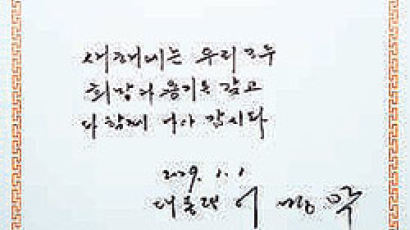 새해에는 우리 모두
희망과 용기를 갖고
다 함께 나아 갑시다
2009. 1. 1
대통령 이 명 박